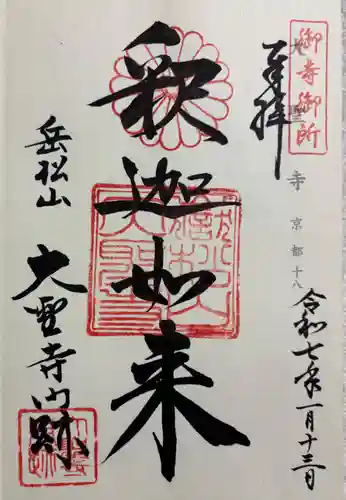 御寺御所
奉拝
大聖寺 京都十八
令和七年一月十三日
釈迦如来
岳松山
大聖寺門跡